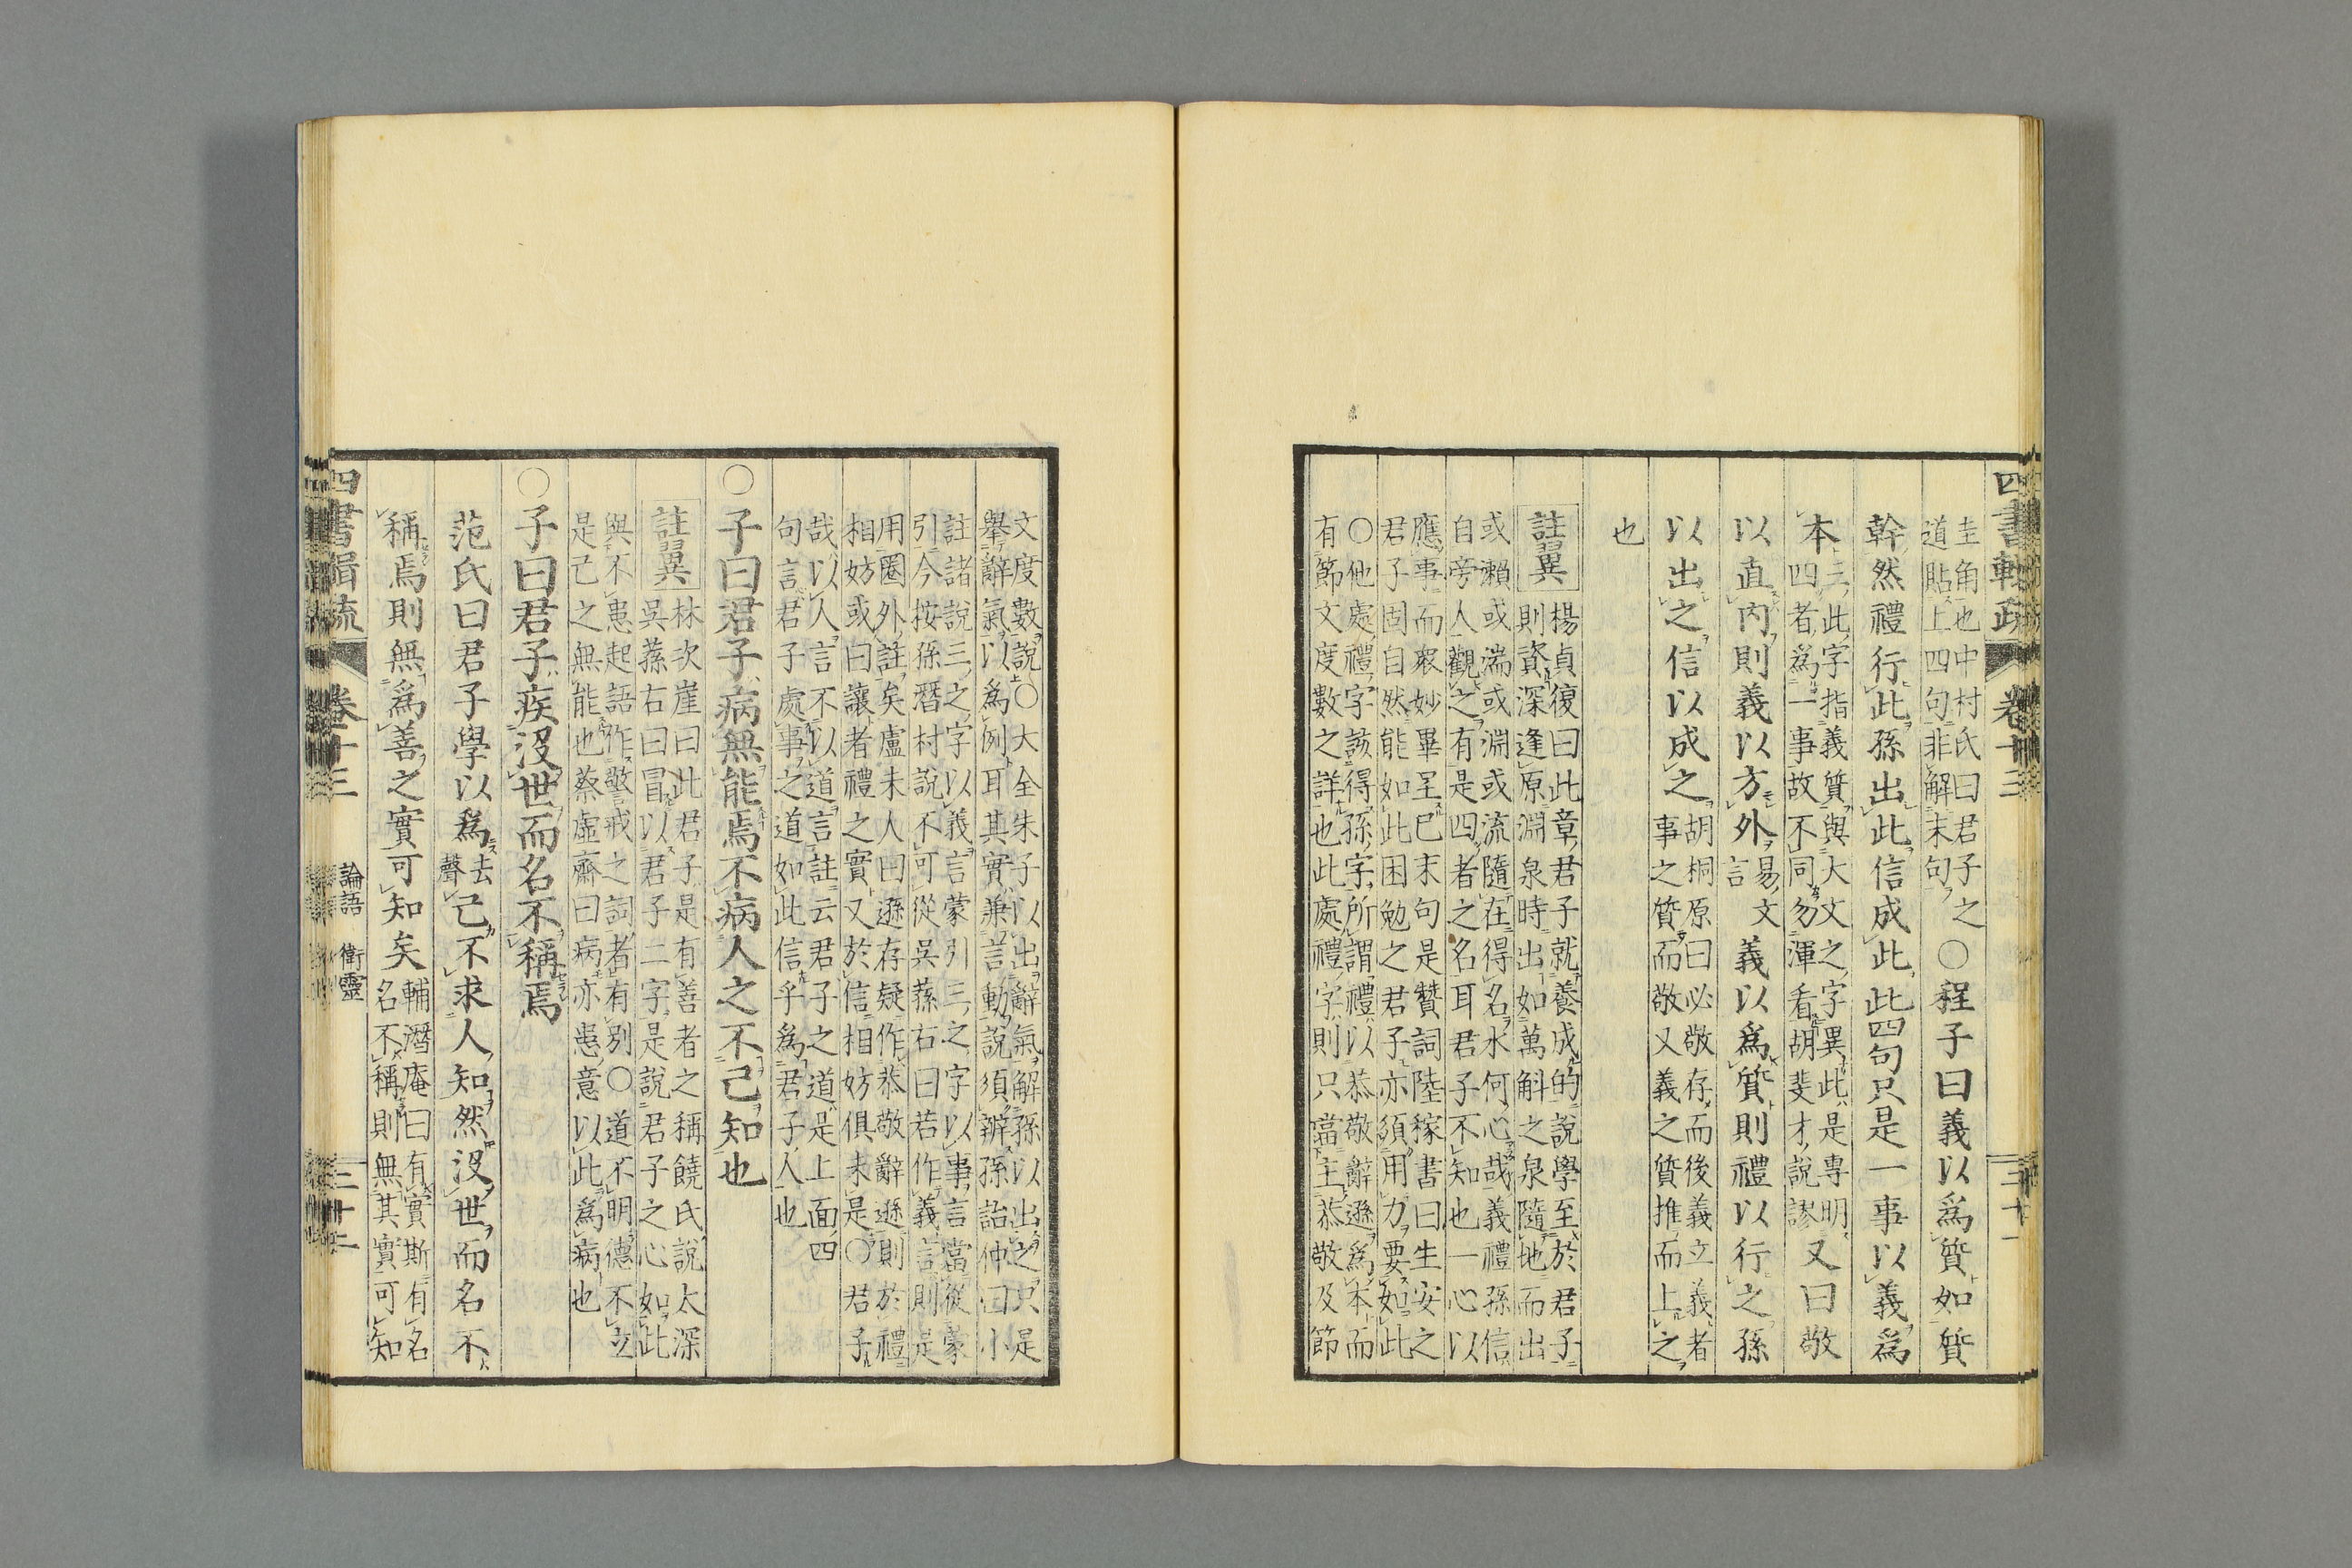 圭角也中村氏曰君子之
道貼上四句非解末句
○程子曰義以爲質如質
幹然禮行此孫出此信成此此四句只是一事以義爲
本
三此字指義質與大文之字異此是專明
四者爲一事故不同勿渾看胡斐才說謬
又曰敬
以直內則義以方外
易文
言
義以爲質則禮以行之孫
以出之信以成之
胡桐原曰必敬存而後義立義者
事之質而敬又義之質推而上之
也
註翼
楊貞復曰此章君子就養成的說學至於君子
則資深逢原淵泉時出如萬斛之泉隨地而出
或瀨或湍或淵或流隨在得名水何心哉義禮孫信
自旁人觀之有是四者之名耳君子不知也一心以
應事而衆妙畢呈已末句是贊詞陸稼書曰生安之
君子固自然能如此困勉之君子亦須用力要如此
○他處禮字該得孫字所謂禮以恭敬辭遜爲本而
有節文度數之詳也此處禮字則只當主恭敬及節
四書輯疏
卷十三
三十一
文度數說○大全朱子以出辭氣解孫以出之只是
舉辭氣以爲例耳其實兼言動說須辨孫詒仲曰小
註諸說三之字以義言蒙引三之字以事言當從蒙
引今按孫潛村說不可從吳蓀右曰若作義言則是
用圈外註矣盧未人曰遜存疑作恭敬辭遜則於禮
相妨或曰讓者禮之實又於信相妨俱未是○君子
哉以人言不以道言註云君子之道是上面四
句言君子處事之道如此信乎爲君子人也
○子曰君子病無能焉不病人之不己知也
註翼
林次崖曰此君子是有善者之稱饒氏說太深
吳蓀右曰冒以君子二字是說君子之心如此
與不患起語作警戒之詞者有別○道不明德不立
是己之無能也蔡虛齋曰病亦患意以此爲病也
○子曰君子疾沒世而名不稱焉
范氏曰君子學以爲
去
聲
己不求人知然沒世而名不
稱焉則無爲善之實可知矣
輔潛庵曰有實斯有名
名不稱則無其實可知
四書輯疏
卷十三
論語
衛靈
三十二